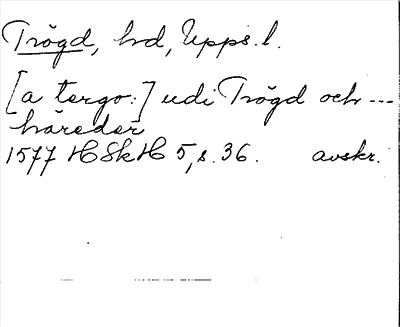 Trögd, hd, Upps. l.
[a tergo:] udi Trögd och ---
häreder
1577 HSkH 5, s. 36. avskr.